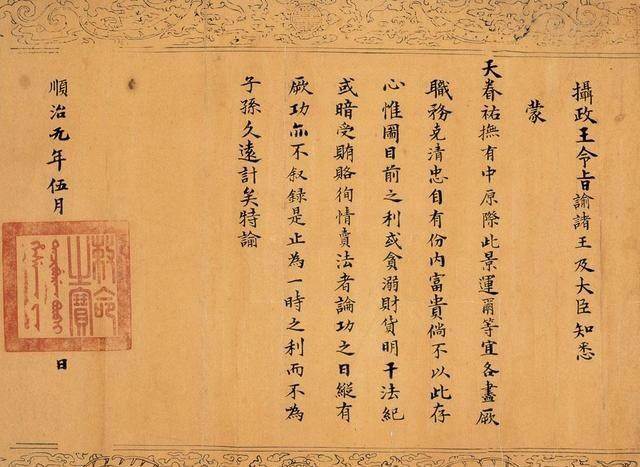 攝政王令旨諭諸王及大臣知悉
蒙
天眷祐撫有中原際此景運爾等宜各盡厥
職務克清忠自有份內富貴倘不以此存
心惟圖目前之利或貪溺財貨明干法紀
或暗受賄賂徇情賣法者論功之日縱有
厥功亦不叙録是止為一時之利而不為
子孫久遠計矣特諭
順治元年伍月
日
敕命
之寶